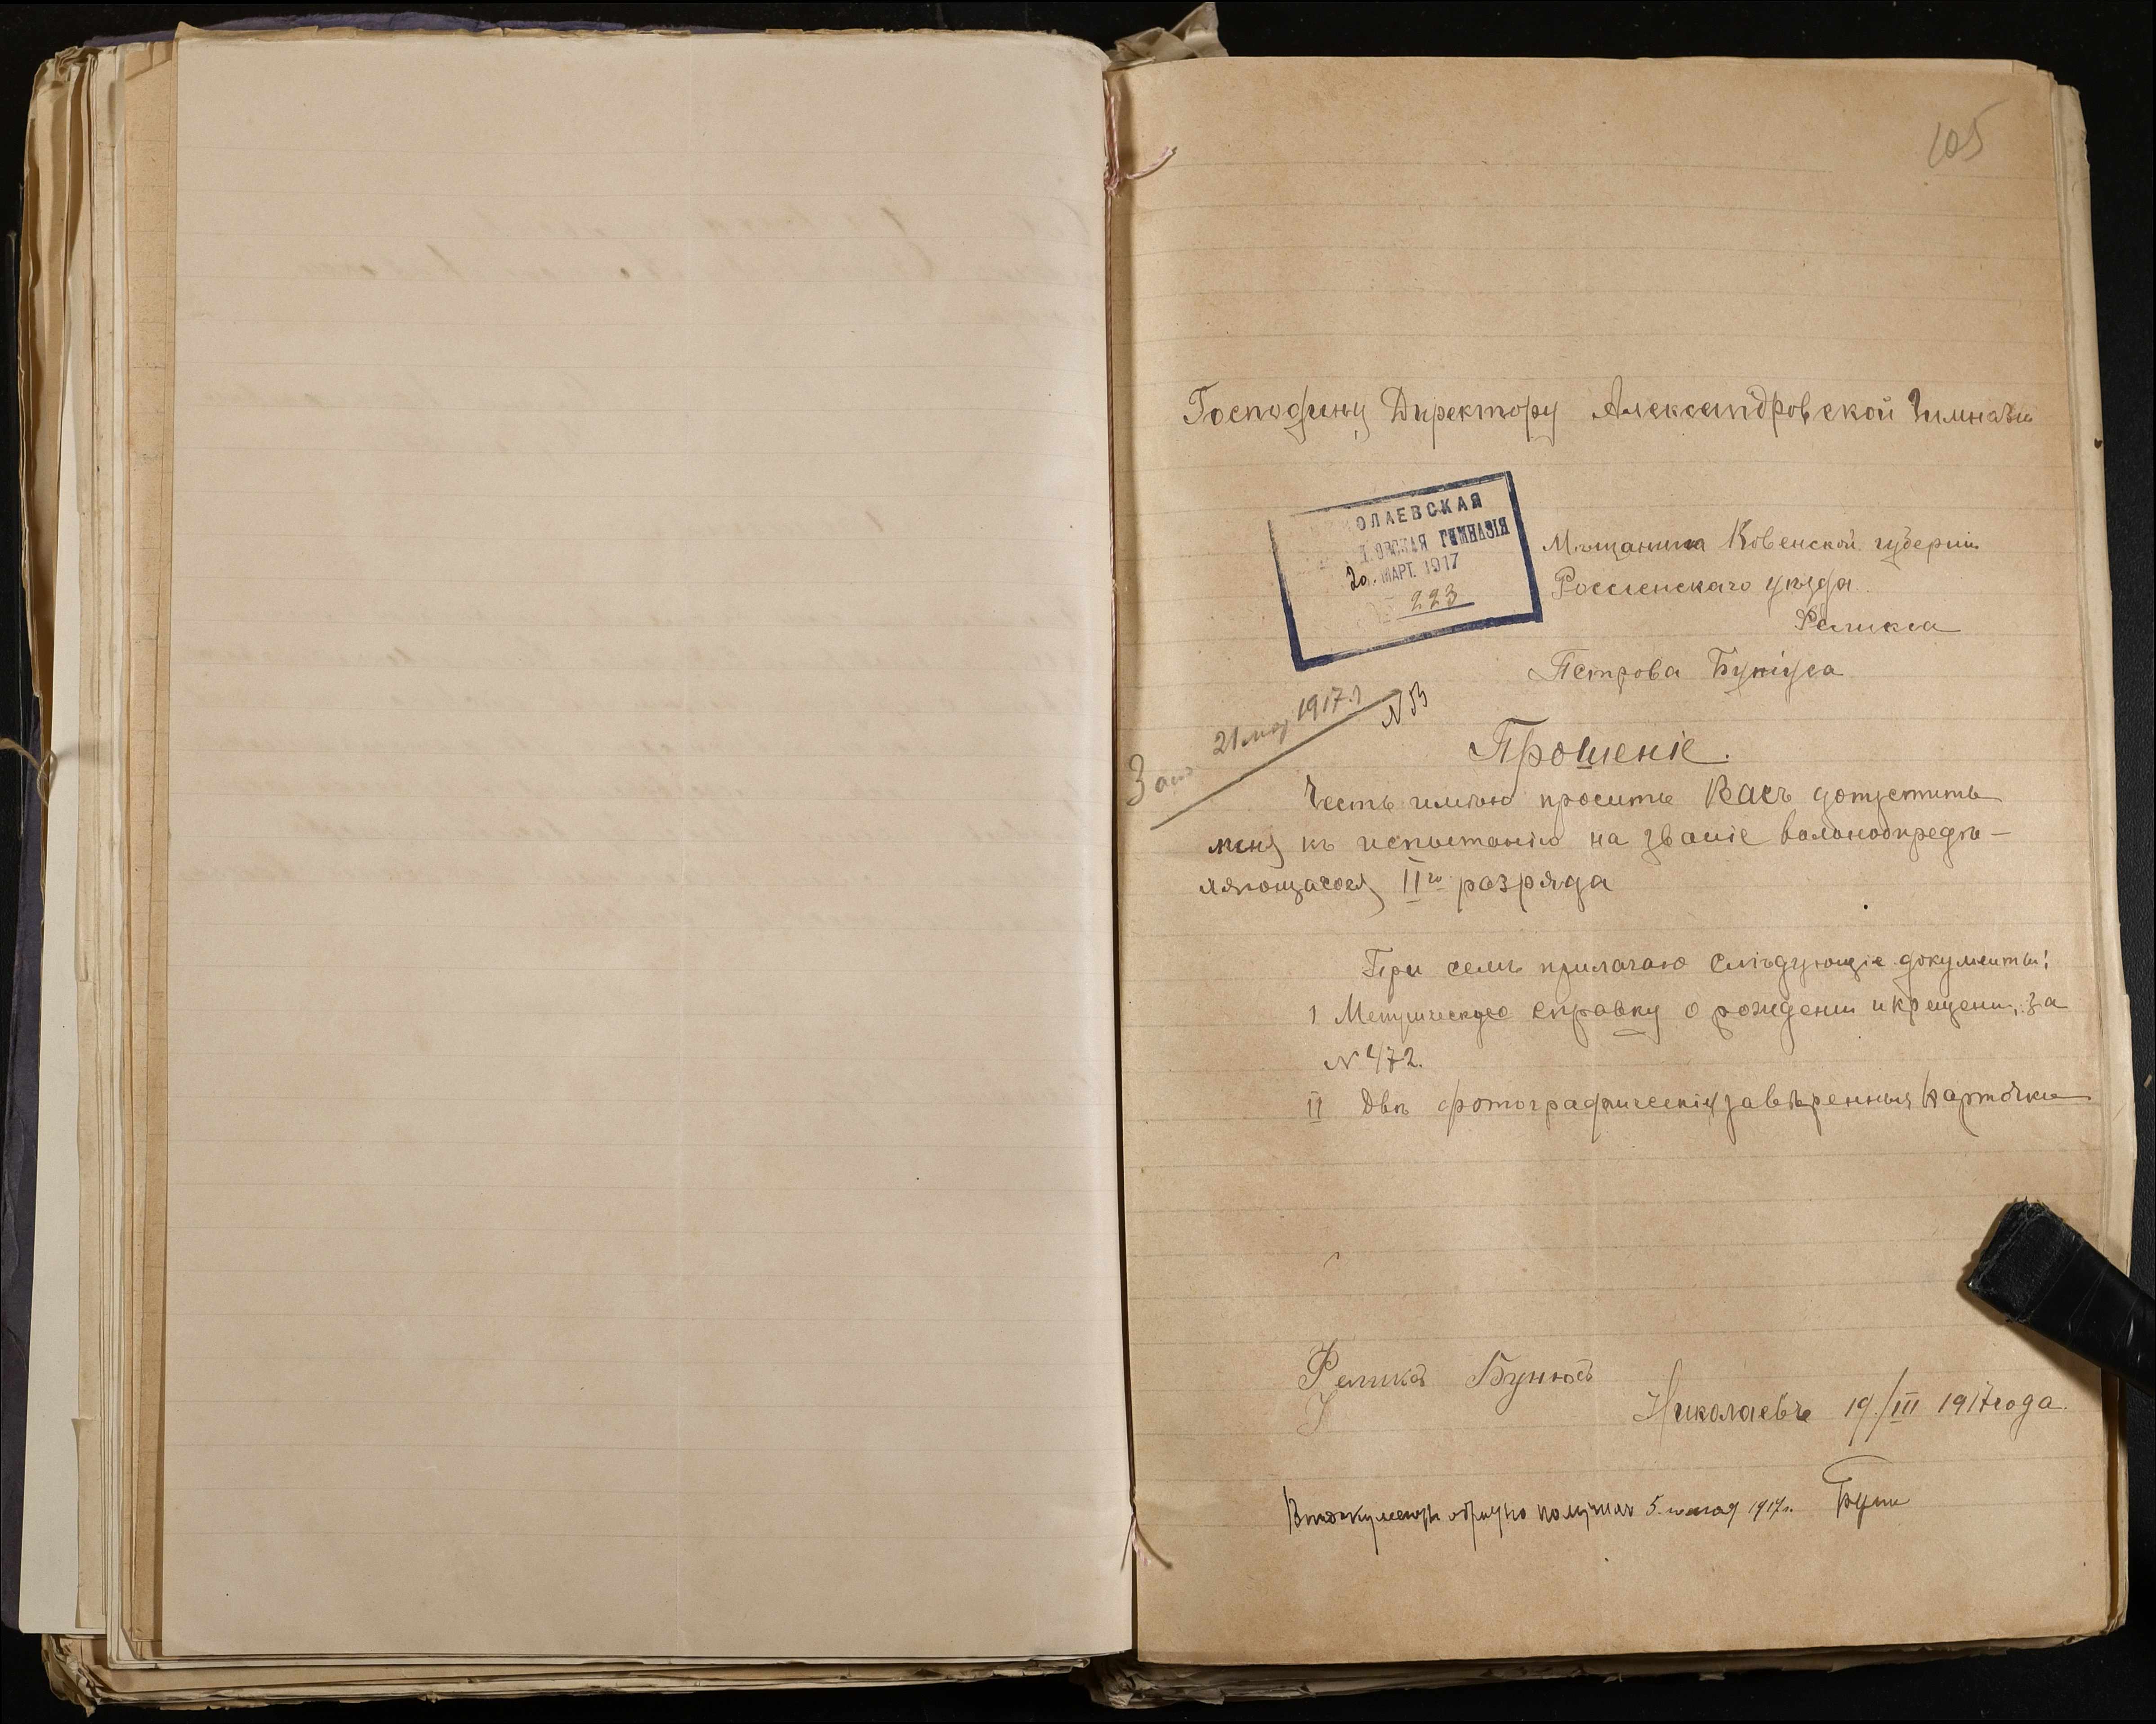 105
Господину Директору Александровской Гимназiи
ОЛАЕВСКАЯ
ОВСКАЯ ГИМНАЗIЯ
20 МАРТ. 1917
223
Мѣщанина Ковенской губернiи
Россiенскаго уѣзда
Феликса
Петрова Бунiуса
21 мар 1917 г
N 53
Прошенiе.
Честь имѣю просить Васъ допустить
меня къ испытанiю на званiе вольноопредѣ-
ляющагося IIго разряда
При семъ прилагаю слѣдующiе документы:
I Метрическую справку о рожденiи и крещенiи, за
N 472.
II Двѣ фотографическiя завѣренныя карточки
Феликсъ Бунюсъ
Николаевъ 19/III 1917 года.
документы обратно получилъ 5 1917 г.